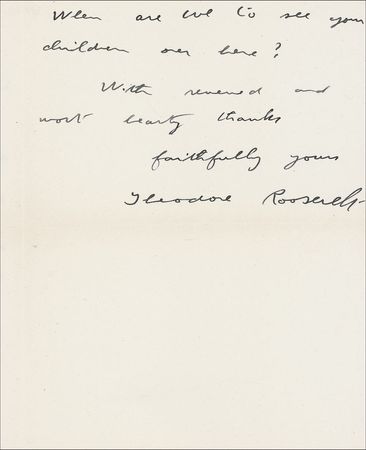 When are we to see your
children over here?
With renewed and
most hearty thanks
faithfully yours
Theodore Roosevelt